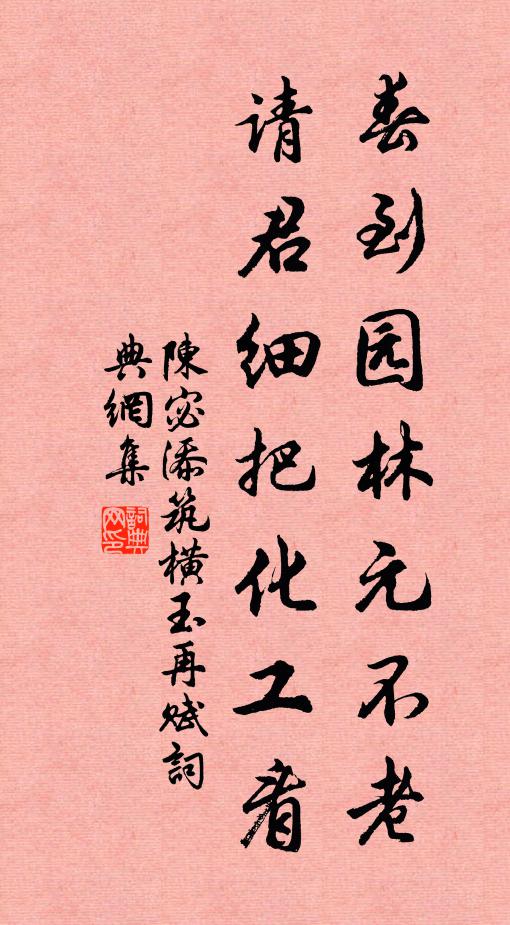 春到园林元不老
请君细把化工看
陳宓添筑橫玉再赋詞
典網集
詞典網印